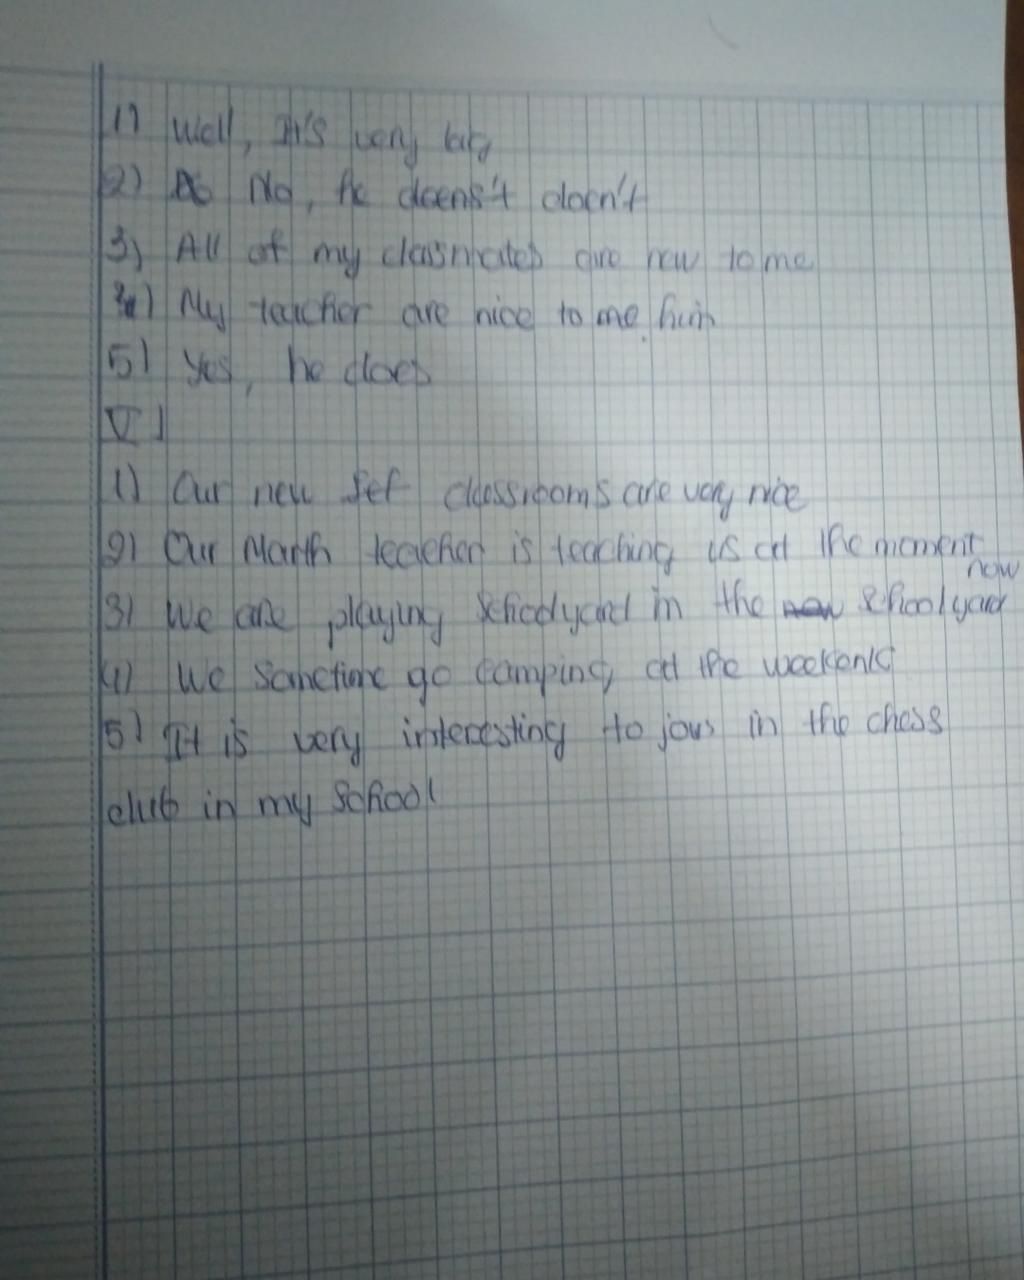 1) Well, It's very big
2) No, he doens't doen't
3) All of my classmates are new to me
4) My teacher are nice to me him
5) Yes, he does
V)
1) Our new set classrooms are very nice
2) Our Marth teacher is teaching us at the moment
now
3) We are playing schoolyard in the now schoolyard
4) We sometime go camping at the weekend
5) It is very interesting to jous in the chess
club in my school